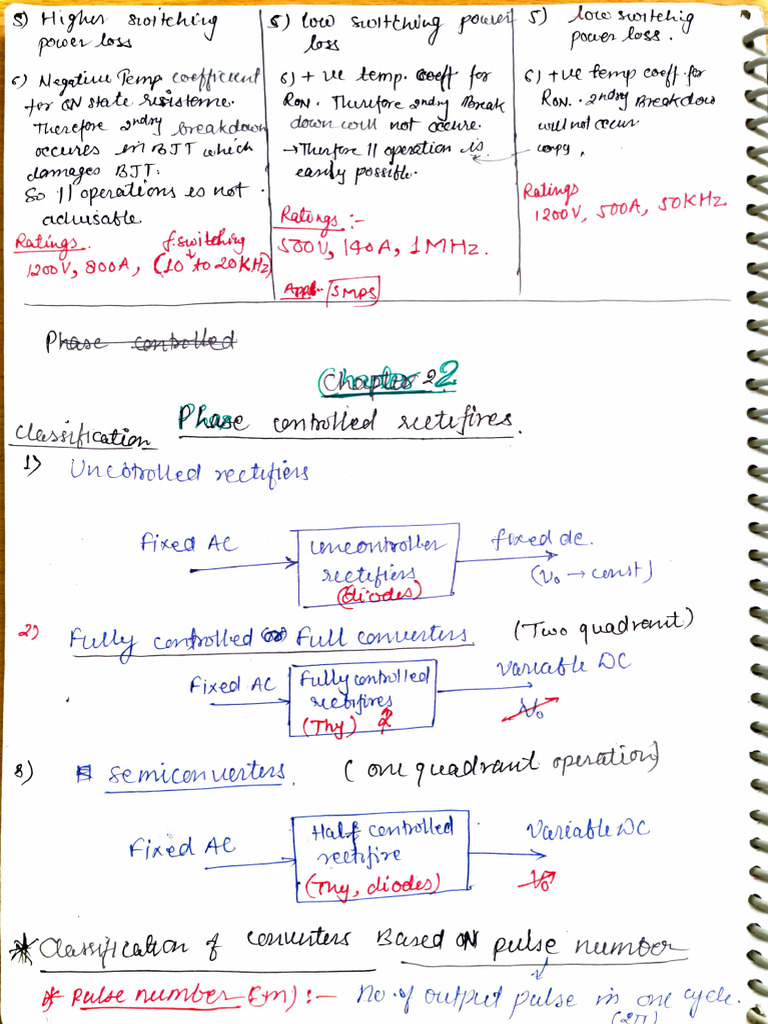 5) Higher switching
power loss
6) Negative Temp coefficient
for ON state resistance.
Therefore 2ndry breakdown
occures in BJT which
damages BJT.
So 11 operations is not
advisable.
Ratings. f.switching
1200V, 800A, (10 to 20KHz)
5) low switching power
loss
6) + ve temp. coeff for
RON. Therefore 2ndry Break
down will not occure.
→ Therefore 11 operation is
easily possible.
Ratings :-
500V, 140A, 1MHz.
Appl.. SMPS
5) low switching
power loss.
6) +ve temp coeff. for
RON. 2ndry Breakdow
will not occur
copy.
Ratings
1200V, 500A, 50KHz
Phase controlled
Chapter 2 2
Phase controlled rectifires.
Classification
1) Uncotrolled rectifiers
Fixed AC
Uncontroller
rectifiers
(diodes)
fixed dc.
(Vo → const)
2) Fully controlled or Full converters (Two quadrant)
Fixed AC
Fully controlled
rectifires
(Thy)
Variable DC
Vo
3) Semiconverters. (one quadrant operation)
Fixed AC
Half controlled
rectifire
(Thy, diodes)
Variable DC
Vo
* Classification of converters Based ON pulse number
* Pulse number (m) :- No. of output pulse in one cycle.
(2π)